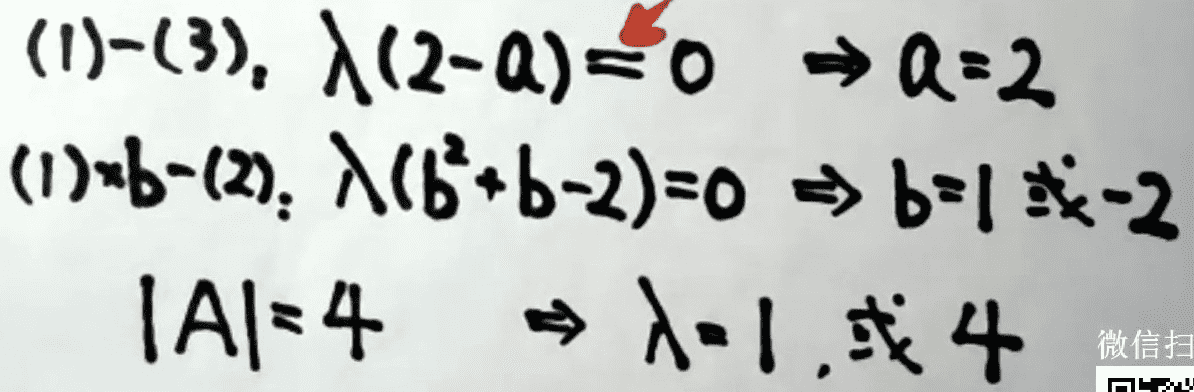 (1)-(3): λ(2-a)=0 ⇒ a=2
(1)×b-(2): λ(b²+b-2)=0 ⇒ b=1 或 -2
|A|=4 ⇒ λ=1,或 4
微信扫